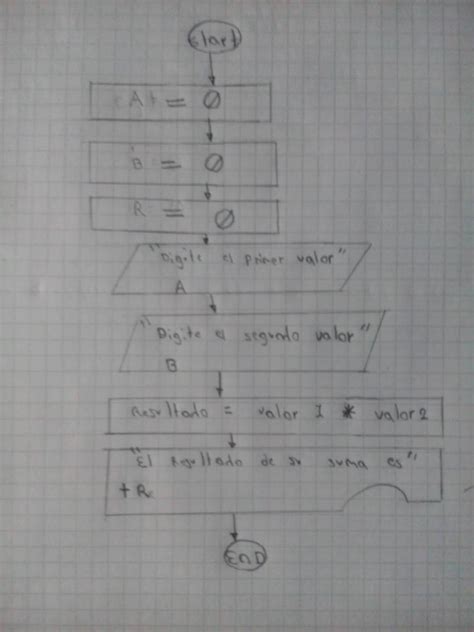 Start
A = Ø
B = Ø
R = Ø
"Digite el primer valor"
A
"Digite el segundo valor"
B
Resultado = valor 1 * valor 2
"El Resultado de su suma es"
+ R
END